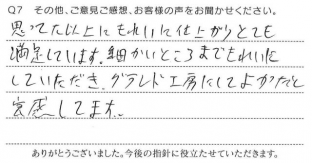 Q7 その他、ご意見ご感想、お客様の声をお聞かせください。
思ってた以上にきれいに仕上がりとても
満足しています。細かいところまできれいに
していただき、グランド工房にしてよかったと
実感してます。
ありがとうございました。今後の指針に役立たせていただきます。